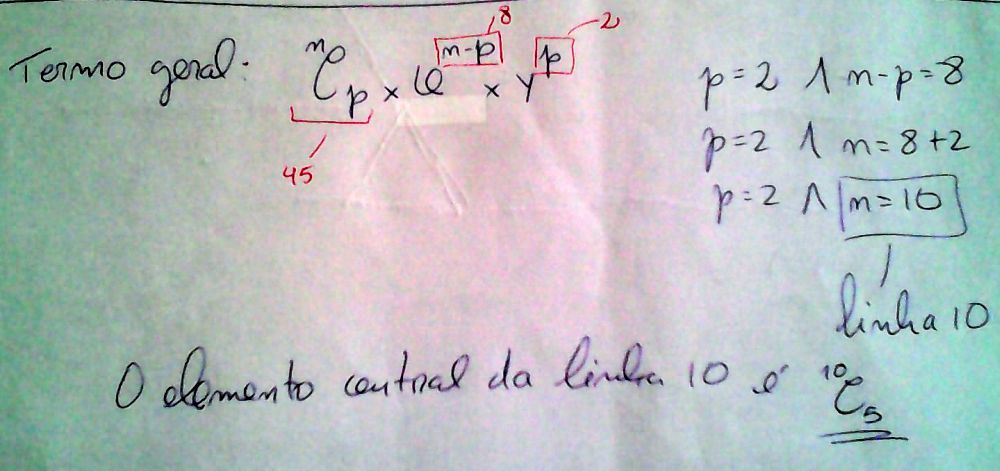 Termo geral: ⁿC_p × x^(n-p) × y^p
8
2
45
p = 2 ∧ n-p = 8
p = 2 ∧ n = 8+2
p = 2 ∧ n = 10
linha 10
O elemento central da linha 10 é ¹⁰C₅